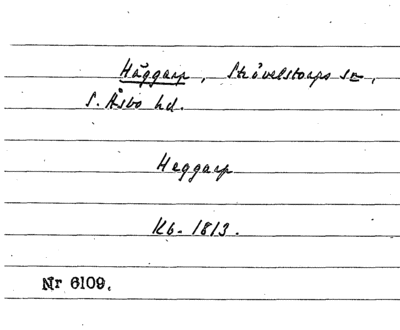 Häggarp, Strövelstorps sn,
S. Åsbo hd.
Heggarp
Kb. 1813.
Nr 6109.